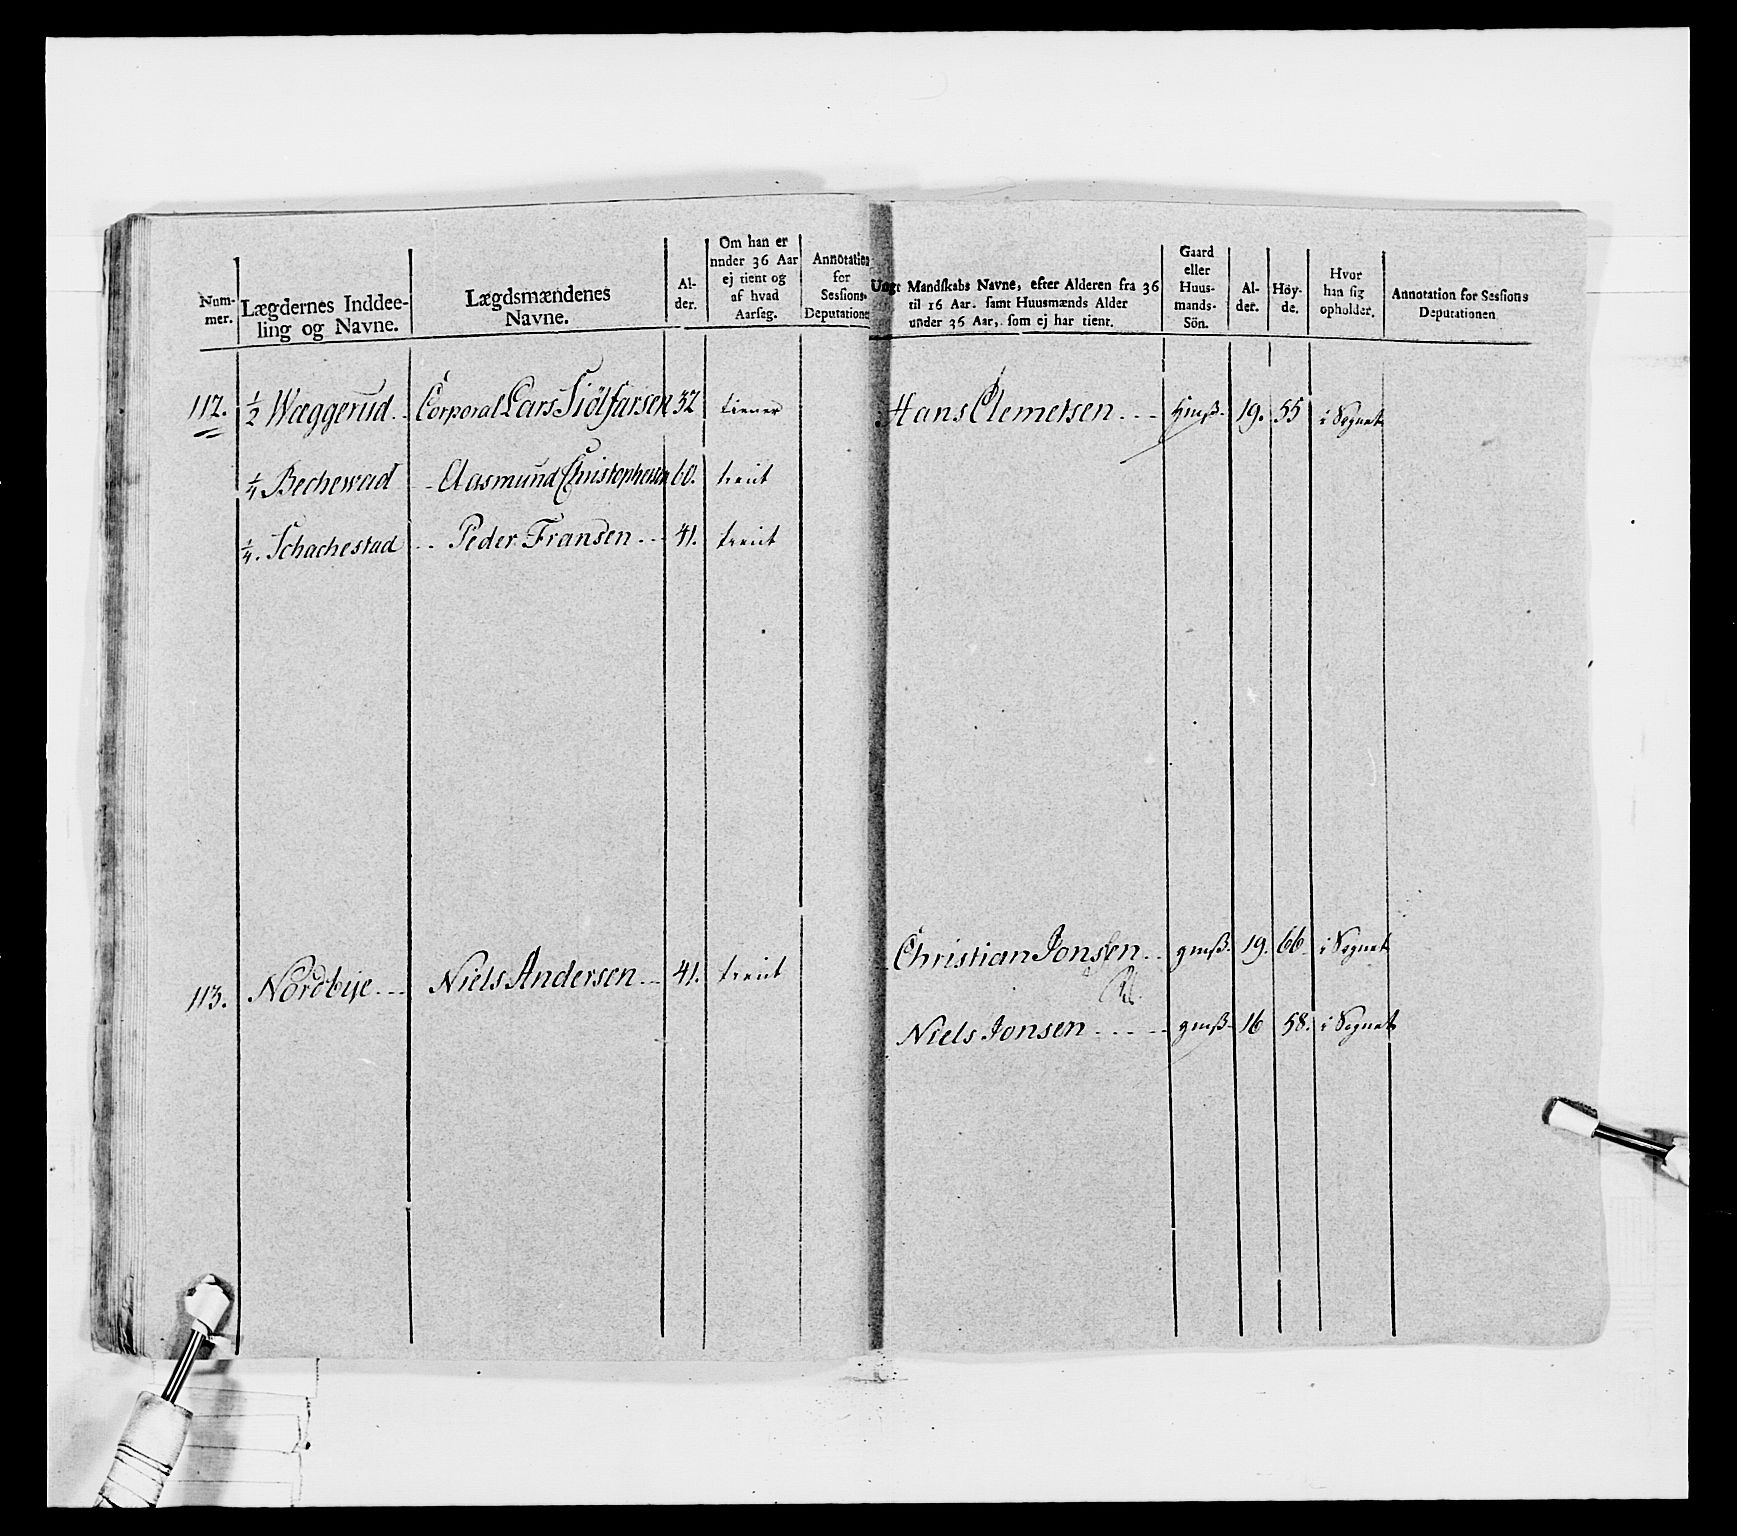 Num-
mer.
Lægdernes Inddee-
ling og Navne.
Lægdsmændenes
Navne.
Al-
der.
Om han er
under 36 Aar
ej tient og
af hvad
Aarsag.
Annotation
for
Sessions-
Deputationen
Ungt Mandskabs Navne, efter Alderen fra 36
til 16 Aar. samt Huusmænds Alder
under 36 Aar, som ej har tient.
Gaard
eller
Huus-
mands-
Sön.
Al-
der.
Höy-
de.
Hvor
han sig
opholder.
Annotation for Sessions
Deputationen
112. 1/2 Wæggerud. Corporal Lars Siölfarsen 32 tiener Hans Clemetsen 19. 55 i Sognet
1/4 Bechewad Aasmund Christophersen 60. tient
1/4. Schachestad Peder Fransen 41. tient
113. Nordbye Niels Andersen 41. tient Christian Jonsen gmß. 19. 66. i Sognet
Niels Jonsen gmß. 16 58. i Sognet